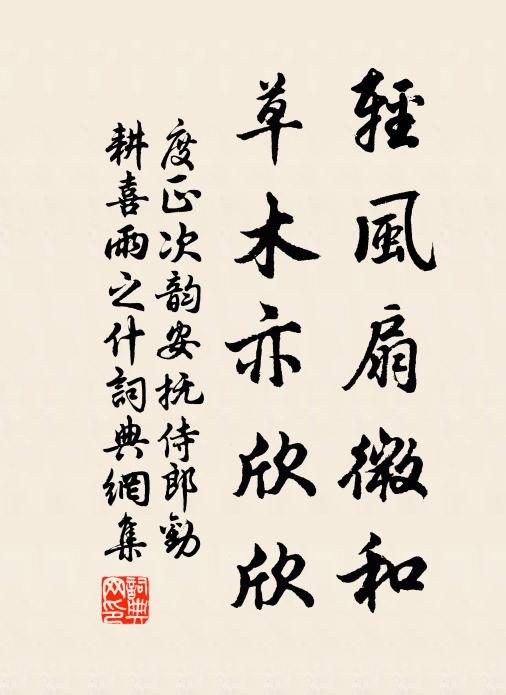 輕風扇微和
草木亦欣欣
度正次韵安抚侍郎勸
耕喜雨之什詞典網集
詞典網印